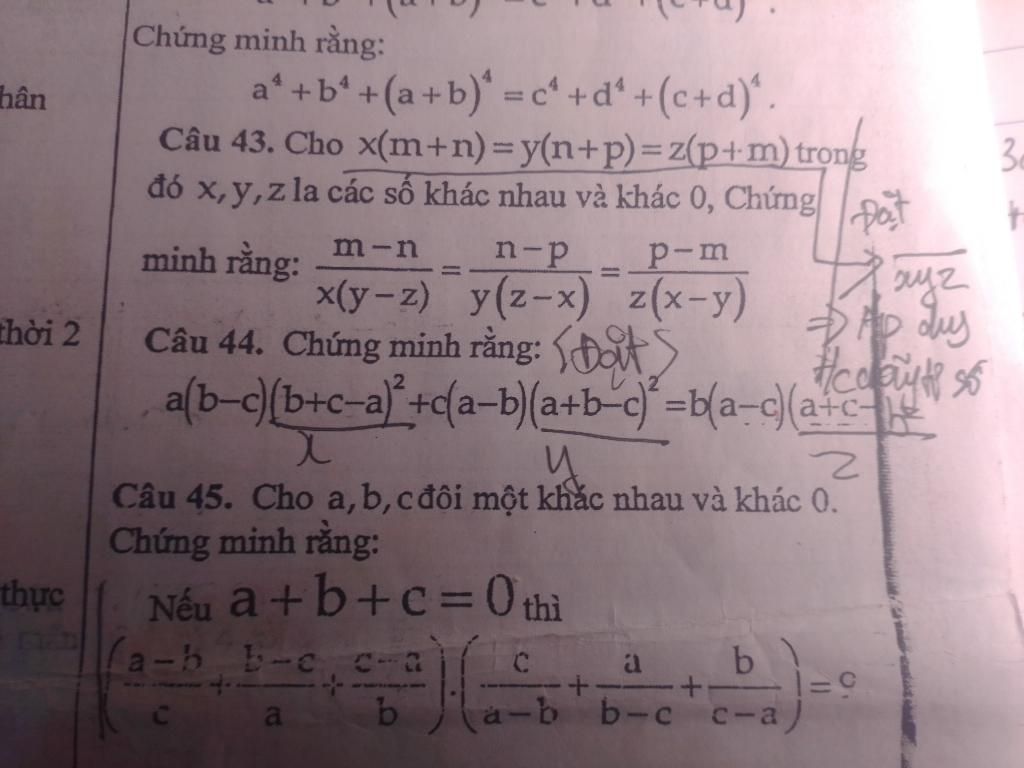 Chứng minh rằng:
hân
a⁴ + b⁴ + (a + b)⁴ = c⁴ + d⁴ + (c + d)⁴.
Câu 43. Cho x(m+n) = y(n+p) = z(p+m) trong
đó x, y, z la các số khác nhau và khác 0, Chứng
Đặt
minh rằng: (m − n)/(x(y − z)) = (n − p)/(y(z − x)) = (p − m)/(z(x − y))
xyz
thời 2
Câu 44. Chứng minh rằng: (Đặt)
⇒ Áp dụng
t/c dãy số
a(b−c)(b+c−a)²+c(a−b)(a+b−c)²=b(a−c)(a+c−
x y z
Câu 45. Cho a, b, c đôi một khác nhau và khác 0.
Chứng minh rằng:
thực
Nếu a + b + c = 0 thì
((a − b)/c + (b − c)/a + (c − a)/b).(c/(a − b) + a/(b − c) + b/(c − a)) = 9